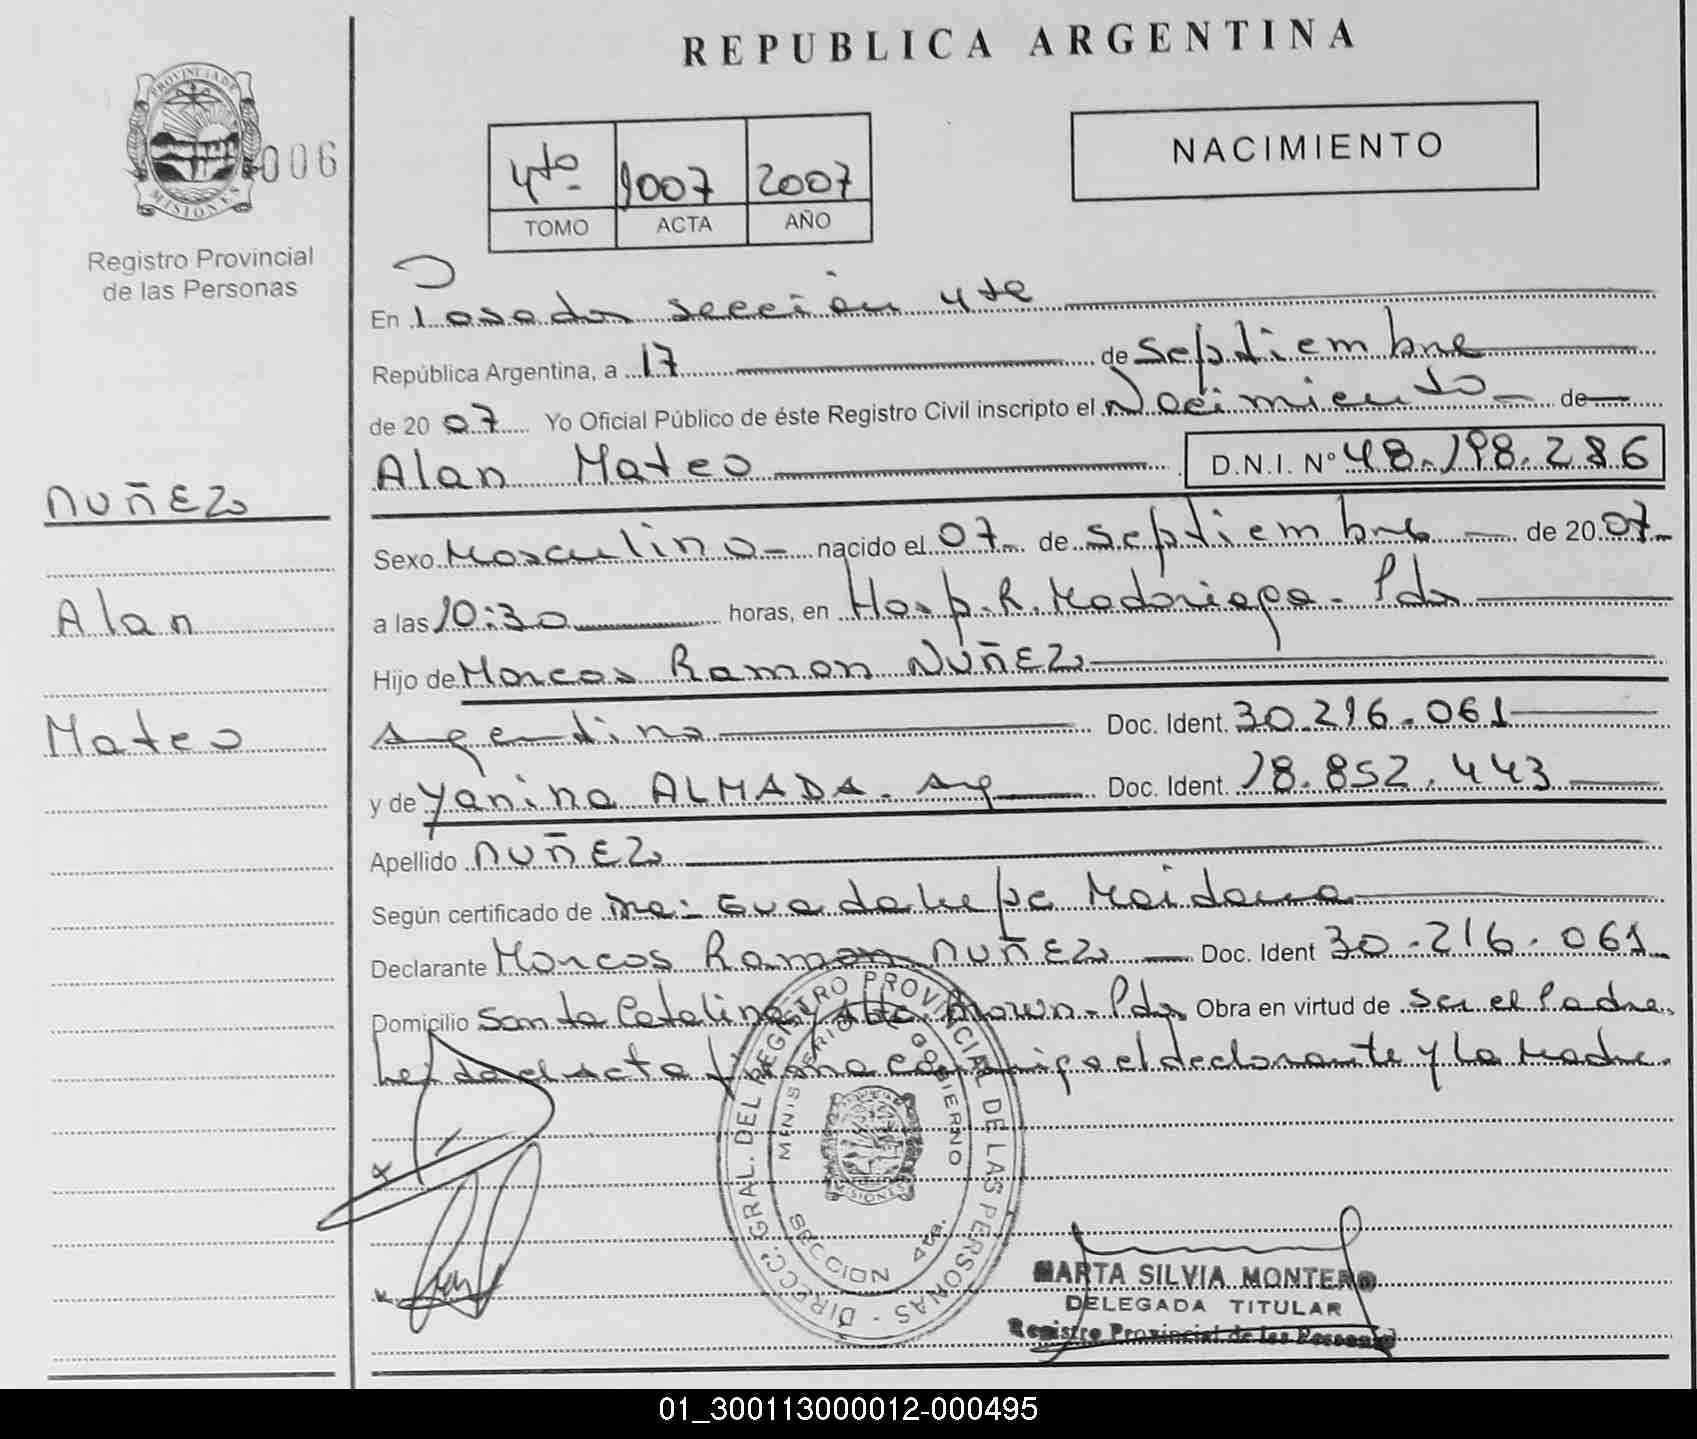 REPUBLICA ARGENTINA
PROVINCIA DE MISIONES
006
Registro Provincial
de las Personas
4to. 1007 2007
TOMO ACTA AÑO
NACIMIENTO
En Posadas sección 4ta
República Argentina, a 17 de Septiembre
de 2007 Yo Oficial Público de éste Registro Civil inscripto el Nacimiento de
Alan Mateo D.N.I. Nº 48.198.286
NUÑEZ
Alan
Mateo
Sexo Masculino nacido el 07 de Septiembre de 2007
a las 10:30 horas, en Hosp. R. Madariaga - Pdas
Hijo de Marcos Ramon NUÑEZ
Argentino Doc. Ident. 30.216.061
y de Yanina ALMADA. Arg Doc. Ident. 18.852.443
Apellido NUÑEZ
Según certificado de Guadalupe Maidana
Declarante Marcos Ramon NUÑEZ Doc. Ident 30.216.061
Domicilio Santa Catalina y Alte. Brown - Pdas Obra en virtud de ser el Padre.
Leída el acta firma conmigo el declarante y la Madre.
DIRECC. GRAL. DEL REGISTRO PROVINCIAL DE LAS PERSONAS -
MINISTERIO GOBIERNO
MISIONES
SECCION 4ta.
MARTA SILVIA MONTERO
DELEGADA TITULAR
Registro Provincial de las Personas
01_300113000012-000495